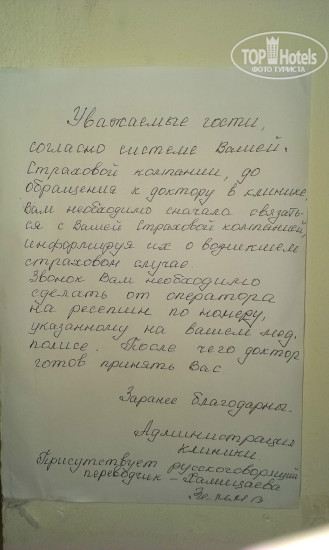 TOP Hotels
ФОТО ТУРИСТА
Уважаемые гости,
согласно системе Вашей
Страховой компании, до
обращения к доктору в клинике,
Вам необходимо сначала связать-
ся с Вашей Страховой компанией,
информируя их о возникшем
страховом случае.
Звонок Вам необходимо
сделать от оператора
на ресепшн по номеру,
указанному на вашем мед.
полисе. После чего доктор
готов принять Вас
Заранее благодарны.
Администрация
клиники
Присутствует русскоговорящий
переводчик -